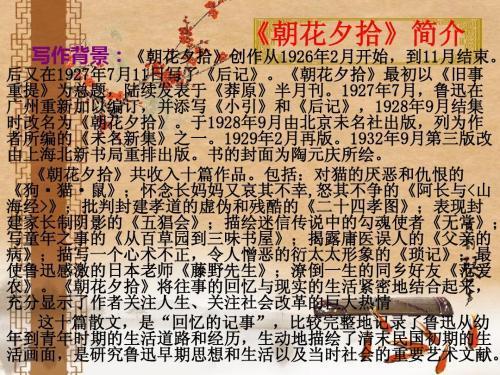 《朝花夕拾》简介
写作背景：《朝花夕拾》创作从1926年2月开始，到11月结束。
后又在1927年7月11日写了《后记》。《朝花夕拾》最初以《旧事
重提》为总题，陆续发表于《莽原》半月刊。1927年7月，鲁迅在
广州重新加以编订，并添写《小引》和《后记》，1928年9月结集
时改名为《朝花夕拾》。于1928年9月由北京未名社出版，列为作
者所编的《未名新集》之一。1929年2月再版。1932年9月第三版改
由上海北新书局重排出版。书的封面为陶元庆所绘。
《朝花夕拾》共收入十篇作品。包括：对猫的厌恶和仇恨的
《狗·猫·鼠》；怀念长妈妈又哀其不幸,怒其不争的《阿长与<山
海经>》；批判封建孝道的虚伪和残酷的《二十四孝图》；表现封
建家长制阴影的《五猖会》；描绘迷信传说中的勾魂使者《无常》；
写童年之事的《从百草园到三味书屋》；揭露庸医误人的《父亲的
病》；描写一个心术不正，令人憎恶的衍太太形象的《琐记》；最
使鲁迅感激的日本老师《藤野先生》；潦倒一生的同乡好友《范爱
农》。《朝花夕拾》将往事的回忆与现实的生活紧密地结合起来，
充分显示了作者关注人生、关注社会改革的巨大热情
这十篇散文，是“回忆的记事”，比较完整地记录了鲁迅从幼
年到青年时期的生活道路和经历，生动地描绘了清末民国初期的生
活画面，是研究鲁迅早期思想和生活以及当时社会的重要艺术文献。